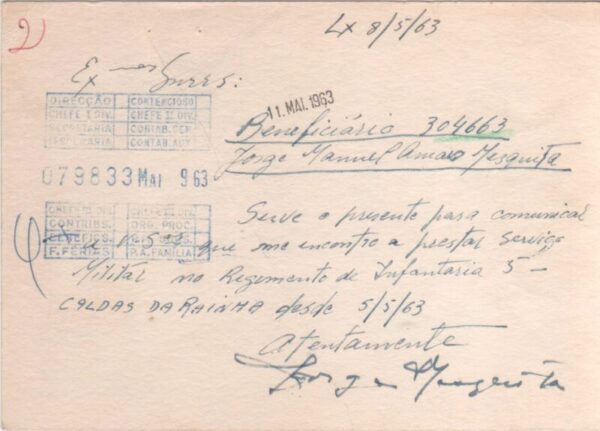 2)
Lx 8/5/63
Ex.mos Snres:
DIRECÇÃO CONTENCIOSO
CHEFE I DIV. CHEFE II DIV.
SECRETARIA CONTAB. GER.
CONTAB. AUX.
11. MAI. 1963
Beneficiário 304663
Jorge Manuel Amaro Mesquita
079833 MAI 963
CHEFE III DIV.
CONTRIBS. ORG. PROC.
BENEFICS.
F. FÉRIAS P.A. FAMÍLIA
Serve o presente para comunicar
a V. S.as que me encontro a prestar Serviço
Militar no Regimento de Infantaria 5 -
CALDAS DA RAINHA desde 5/5/63
Atentamente
Jorge Mesquita